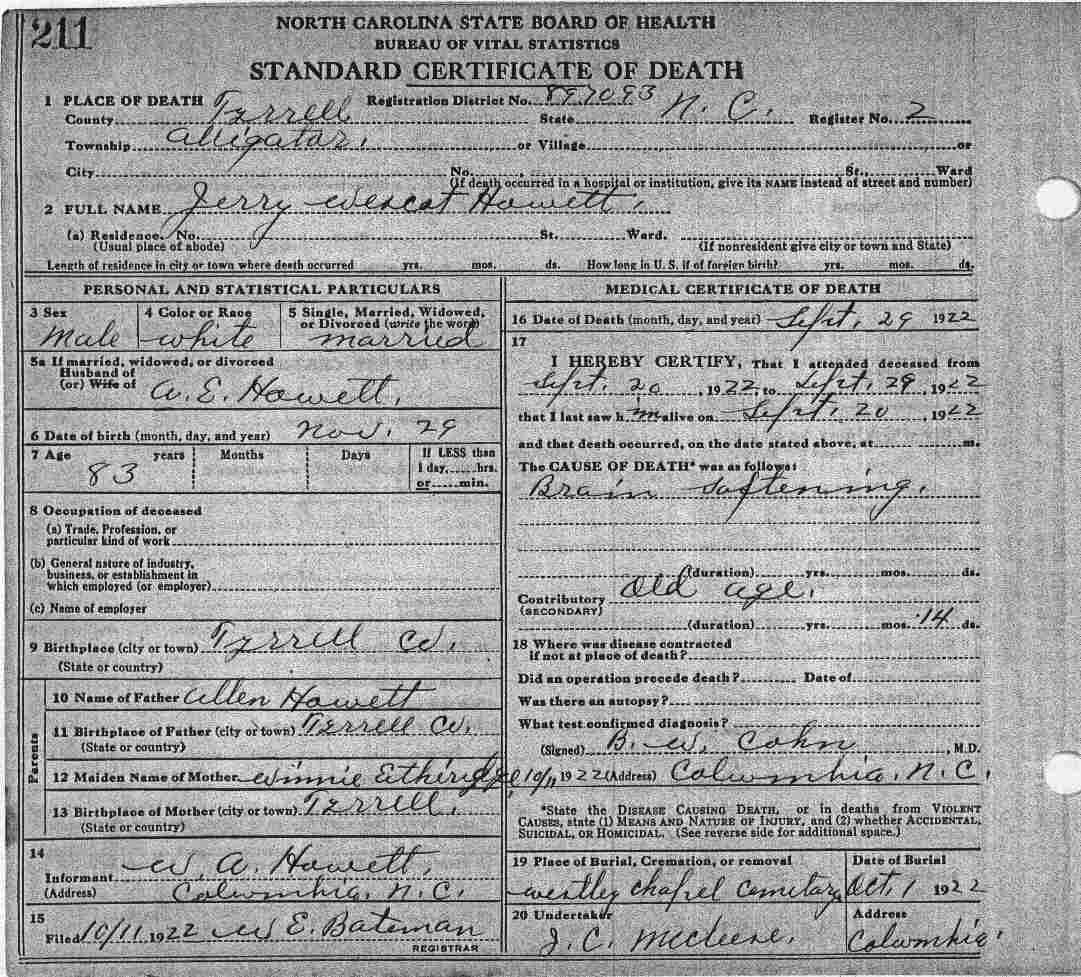 211
NORTH CAROLINA STATE BOARD OF HEALTH
BUREAU OF VITAL STATISTICS
STANDARD CERTIFICATE OF DEATH
1 PLACE OF DEATH Registration District No. 897093
County Tyrrell State N. C. Register No. 2
Township Alligator. or Village or
City No. St., Ward
(If death occurred in a hospital or institution, give its NAME instead of street and number)
2 FULL NAME Jerry Wescot Howett.
(a) Residence. No. St. Ward.
(Usual place of abode) (If nonresident give city or town and State)
Length of residence in city or town where death occurred yrs. mos. ds. How long in U. S. if of foreign birth? yrs. mos. ds.
PERSONAL AND STATISTICAL PARTICULARS
3 Sex 4 Color or Race 5 Single, Married, Widowed, or Divorced (write the word)
Male white married
5a If married, widowed, or divorced
Husband of
(or) Wife of A. E. Howett.
6 Date of birth (month, day, and year) Nov. 29
7 Age years Months Days If LESS than
83 1 day, hrs.
or min.
8 Occupation of deceased
(a) Trade, Profession, or
particular kind of work
(b) General nature of industry,
business, or establishment in
which employed (or employer)
(c) Name of employer
9 Birthplace (city or town) Tyrrell Co.
(State or country)
Parents
10 Name of Father Allen Howett
11 Birthplace of Father (city or town) Terrell Co.
(State or country)
12 Maiden Name of Mother Winnie Etheridge
13 Birthplace of Mother (city or town) Terrell.
(State or country)
14
Informant W. A. Howett.
(Address) Columbia, N. C.
15
Filed 10/11 1922 W E. Bateman
REGISTRAR
MEDICAL CERTIFICATE OF DEATH
16 Date of Death (month, day, and year) Sept. 29 1922
17
I HEREBY CERTIFY, That I attended deceased from
Sept. 20, 1922, to Sept. 29, 1922
that I last saw h im alive on Sept. 20, 1922
and that death occurred, on the date stated above, at m.
The CAUSE OF DEATH* was as follows:
Brain Softening.
(duration) yrs. mos. ds.
Contributory Old age.
(SECONDARY)
(duration) yrs. mos. 14 ds.
18 Where was disease contracted
if not at place of death?
Did an operation precede death? Date of
Was there an autopsy?
What test confirmed diagnosis?
(Signed) B. W. Cohn, M.D.
10/11 1922 (Address) Columbia, N. C.
*State the DISEASE CAUSING DEATH, or in deaths from VIOLENT
CAUSES, state (1) MEANS AND NATURE OF INJURY, and (2) whether ACCIDENTAL,
SUICIDAL, OR HOMICIDAL. (See reverse side for additional space.)
19 Place of Burial, Cremation, or removal Date of Burial
Westley Chapel Cemetary Oct. 1 1922
20 Undertaker Address
J. C. Columbia.